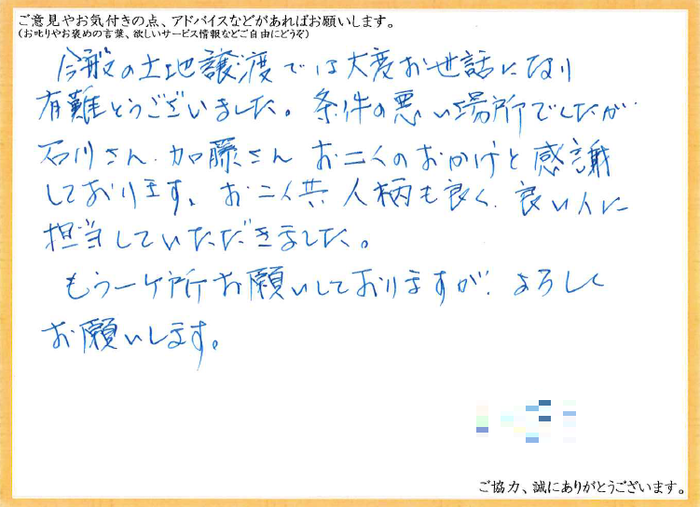 ご意見やお気付きの点、アドバイスなどがあればお願いします。
(お叱りやお褒めの言葉、欲しいサービス情報などご自由にどうぞ)
今般の土地譲渡では大変お世話になり
有難とうございました。条件の悪い場所でしたが
石川さん、加藤さん お二人のおかげと感謝
しております。お二人共 人柄も良く、良い人に
担当していただきました。
もう一ケ所お願いしておりますが、よろしく
お願いします。
ご協力、誠にありがとうございます。